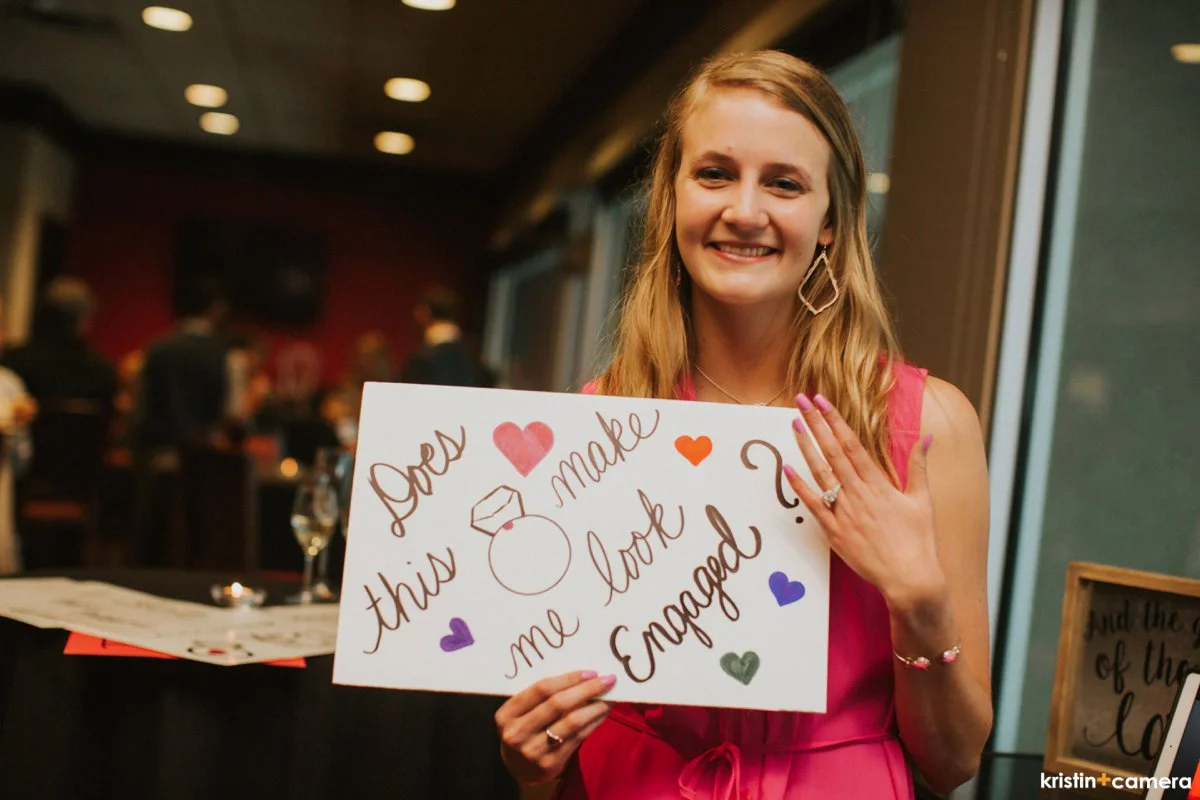 Does this make me look Engaged ?
And the g
of the
Lo
kristin+camera